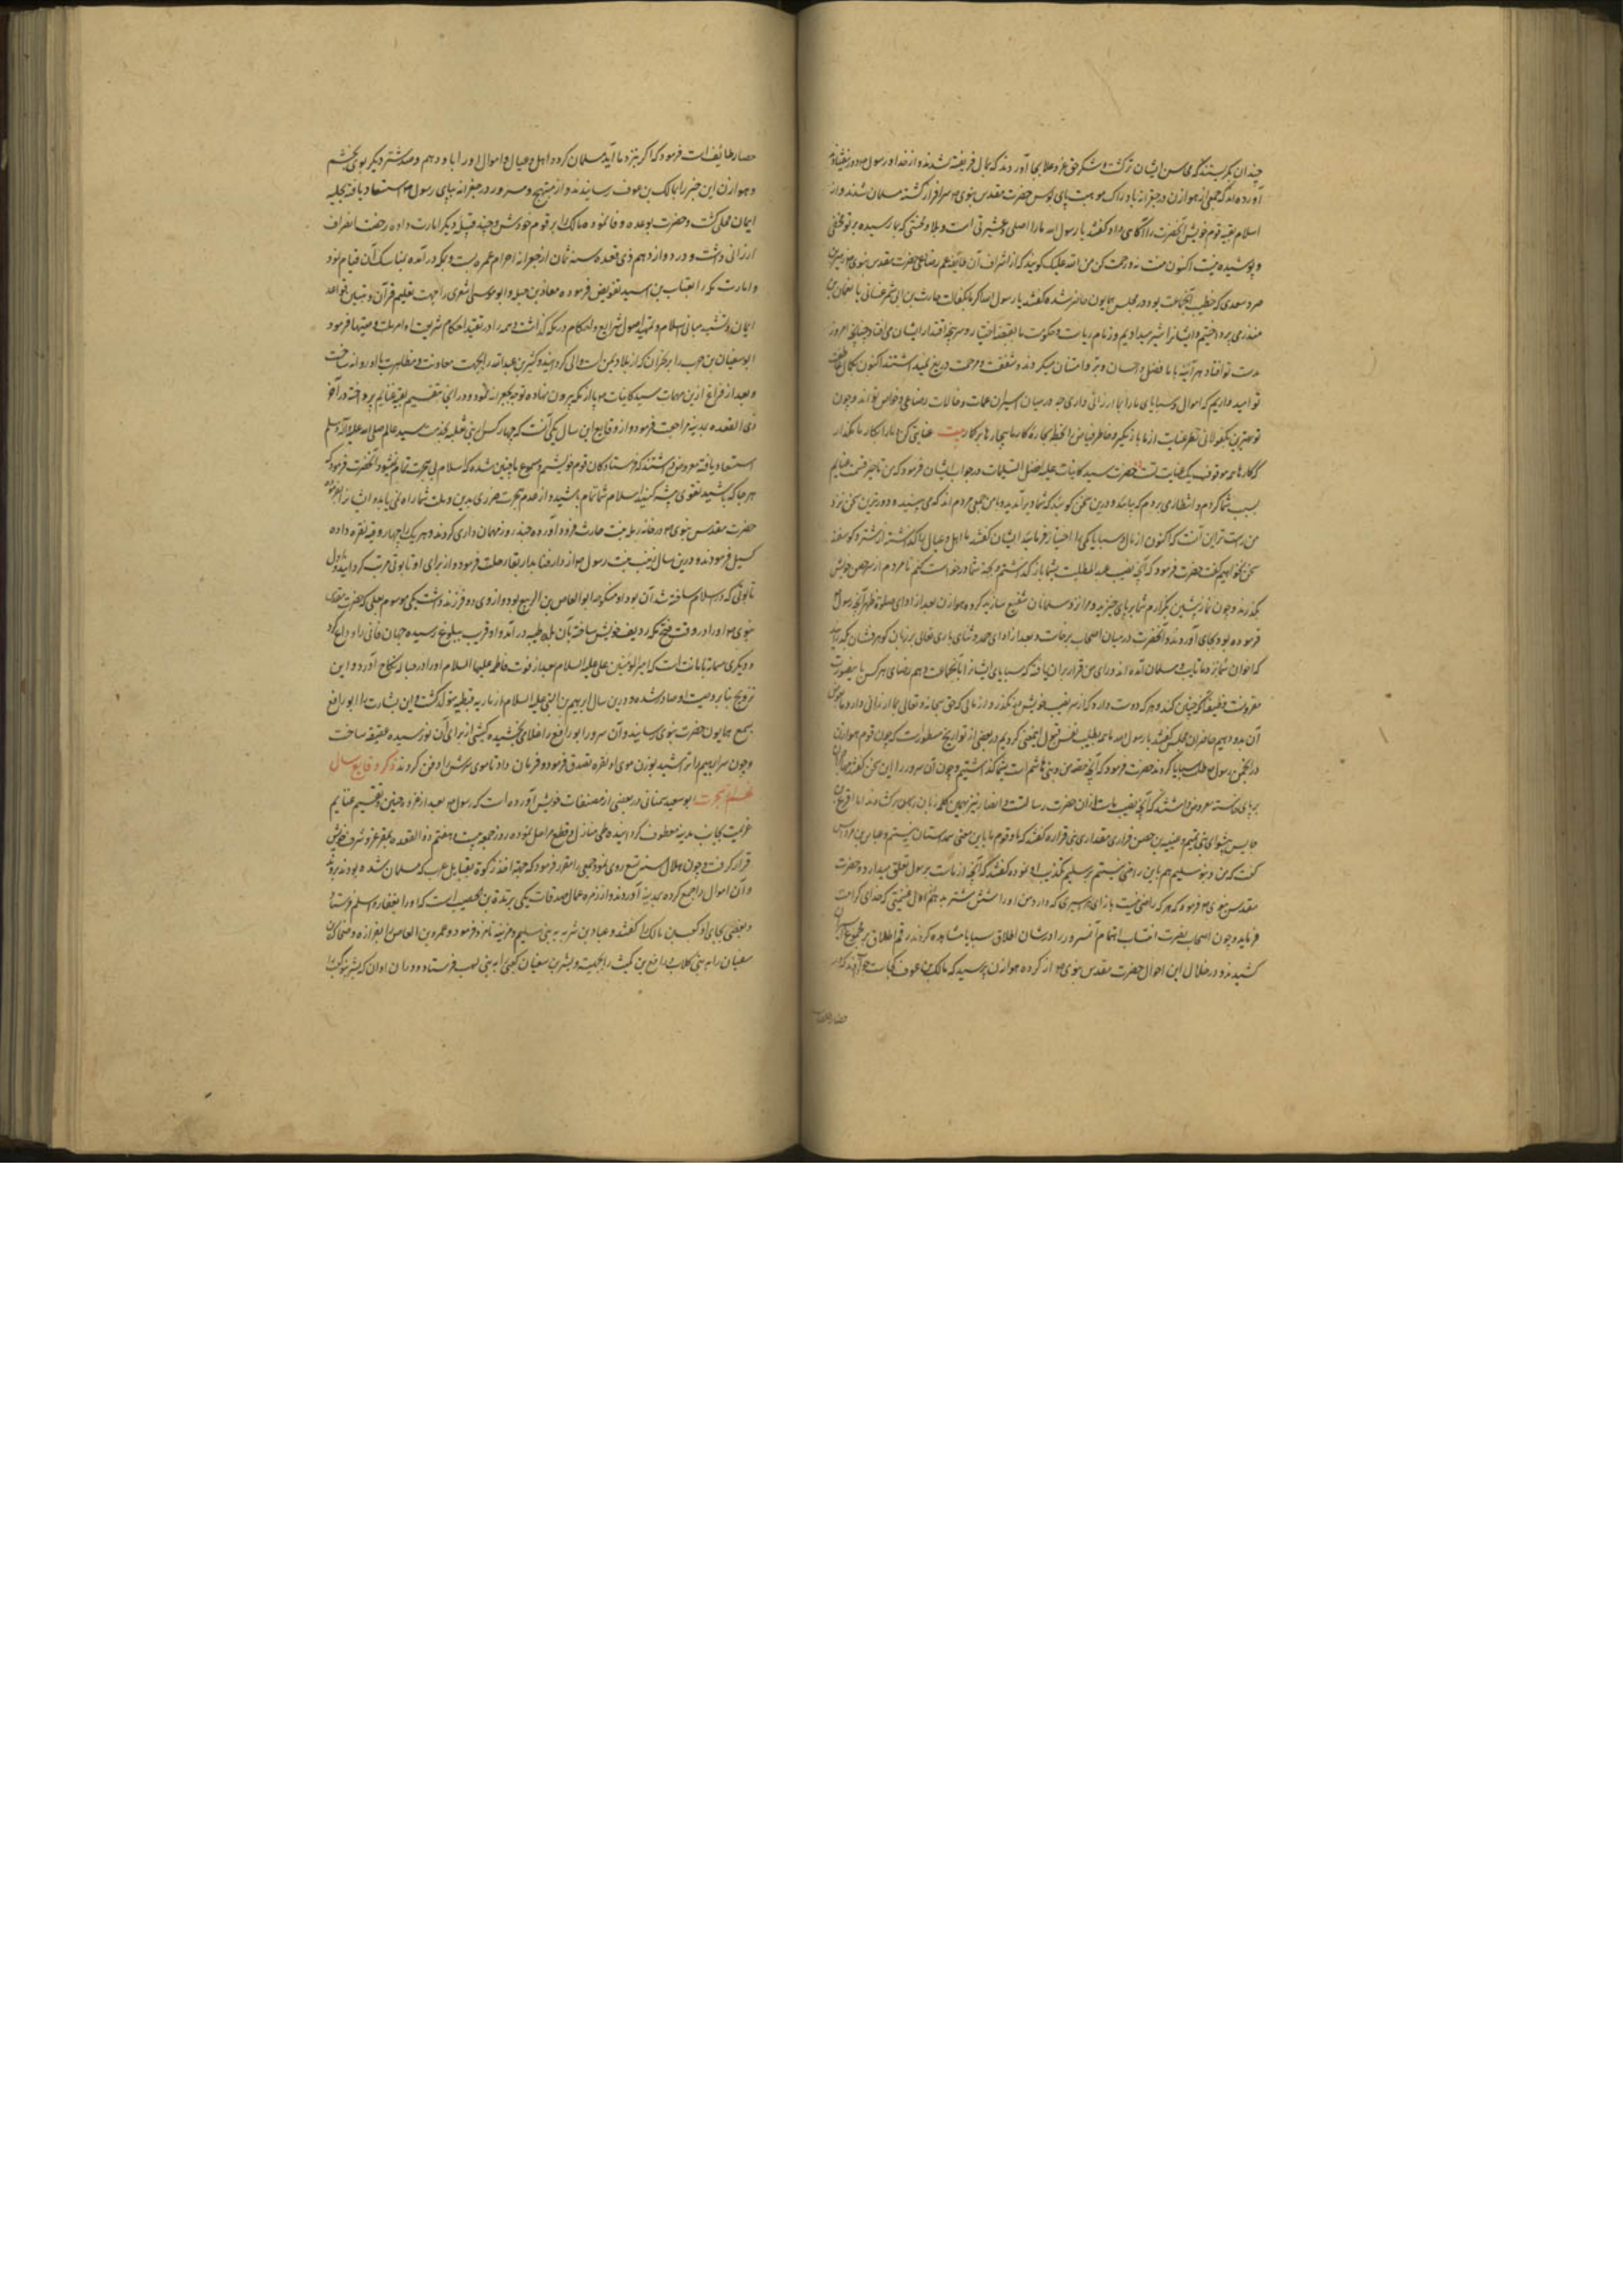 چندان بگریستند که محاسن ایشان تر گشت و شکر حق عز و علا بجا آوردند
آورده اند که جمعی از هوازن در جعرانه بادراک موهبت پای بوس حضرت مقدس نبوی سرافراز گشته مسلمان شدند و از
اسلام بقیه قوم خویش آنحضرت را آگاهی داده گفتند یا رسول الله ما را اصلی و عشیرتی است و بلا و محنتی که بما رسیده بر تو مخفی
و پوشیده نیست اکنون منت نه و رحمت کن من الله علیک گویند که از اشراف آن طایفه عم رضاعی حضرت مقدس نبوی
صرد سعدی که خطیب آنجماعت بود در مجلس همایون حاضر شده گفت یا رسول الله اگر ما بکفالت حارث بن ابی شمر غسانی یا نعمان بن
منذر می پرداختیم و ایشان را شیر میدادیم و زمام ریاست و حکومت ما بقبضه اختیار و سرپنجه اقتدار ایشان می افتاد چنانچه امروز
بدست تو افتاد هر آینه با ما فضل و احسان و بر و امتنان میکردند و شفقت و مرحمت دریغ نمیداشتند اکنون بکمال عاطفت
تو امید واریم که اموال و سبایای ما را بما ارزانی داری چه در میان اسیران عمات و خالات رضاعی و خواص تو اند و چون
تو بهترین مکفولانی نظر عنایت از ما باز مگیر بیت عنایتی کن و ما را بکار ما مگذار
که کارها همه موقوف یک عنایت تست حضرت سید کاینات علیه افضل التسلیمات در جواب ایشان فرمود که من تاخیر قسمت غنایم
بسبب شما کردم و انتظار می بردم که بیایند و درین سخن گویند که شما دیر آمدید و با من جمعی مردم اند که می بینید و دوسترین سخن نزد
من راست ترین آنست که اکنون از مال و سبایا یکی را اختیار فرمایند ایشان گفتند ما اهل و عیال را گذاشته از شتر و گوسفند
سخن نخواهیم گفت حضرت فرمود که آنچه نصیب عبد المطلب است بشما باز گذاشتم و بجهة شما درخواست کنم تا مردم از سر حصص خویش
بگذرند و چون نماز پیشین بگزارم شما بر پای خیزید و مرا نزد مسلمانان شفیع سازید گروه هوازن بعد از ادای صلوة ظهر آنچه رسول
فرموده بود بجای آوردند و آنحضرت در میان اصحاب برخاست و بعد از ادای حمد و ثنای باری تعالی بر زبان گوهرفشان گذرانید
که اخوان شما نزد ما تایب و مسلمان آمده اند و رای من قرار بر آن یافته که سبایای ایشان را بآنجماعت دهم رضای هر کس با ینصورت
مقرونست چنان کند و هر که دوست دارد که از سر نصیب خویش نگذرد از مالی که حق سبحانه و تعالی بما ارزانی دارد ما عوض
آن بدو دهیم حاضران مجلس گفتند یا رسول الله ما همه بطیب نفس قبول اینمعنی کردیم در بعضی از تواریخ مسطورست که چون قوم هوازن
در انجمن رسول طلب سبایا کردند حضرت فرمود که آنچه حصه من و بنی هاشم است بشما گذاشتیم و چون آن سرور را این سخن گفت مهاجران
بر پای خاسته معروض داشتند که آنچه نصیب ماست از آن حضرت رسالت و انصار نیز بهمین کلمه زبان برگشادند اما اقرع بن
حابس پیشوای بنی تمیم و عیینه بن حصن فزاری مقتدای بنی فزاره گفتند که ما و قوم ما باین معنی همداستان نیستیم و عباس بن مرداس
گفت که من و بنو سلیم هم باین راضی نیستیم بنو سلیم تکذیب او نموده گفتند که آنچه از ماست برسول تعلق میدارد و حضرت
مقدس نبوی فرمود که هر که راضی نیست بازای هر اسیری که دارد من او را شش شتر بدهم از اول غنیمتی که خدای کرامت
فرماید و چون اصحاب نصرت انتساب اهتمام آنسرور را در شان اطلاق سبایا مشاهده کردند رقم اطلاق بر مجموع
کشیدند و در خلال این احوال حضرت مقدس نبوی از گروه هوازن پرسید که مالک بن عوف کجاست جواب دادند که در
حصار طائف است فرمود که اگر بنزد ما آید مسلمان گردد اهل و عیال و اموال او را باو دهم و صد شتر دیگر بوی بخشم
و هوازن این خبر را بمالک بن عوف رسانیدند و او مبتهج و مسرور در جعرانه بپای بوس رسول استسعاد یافته بحلیه
ایمان محلی گشت و حضرت بوعده وفا نموده مالک را بر قوم خودش و چند قبیله دیگر امارت داده رخصت انصراف
ارزانی داشت و در دوازدهم ذی قعده سنه ثمان از جعرانه احرام عمره بست و بمکه در آمده بمناسک آن قیام نمود
و امارت مکه را بعتاب بن اسید تفویض فرموده معاذ بن جبل و ابو موسی اشعری را جهت تعلیم قرآن و تبیین قواعد
ایمان و تشیید مبانی اسلام و تمهید اصول شرایع و احکام در مکه گذاشت و همه را در تقیید احکام شریعت وصیتها فرمود
ابو سفیان بن حرب را بر نجران که از بلاد یمن است والی گردانید و کثیر بن عبدالله را بجهت معاونت و مظاهرت با او روانه ساخت
و بعد از فراغ ازین مهمات سید کاینات پا از مکه بیرون نهاده توجه بجعرانه نمود و در انجا بتقسیم بقیه غنایم پرداخته در آخر
ذی القعده بمدینه مراجعت فرمود و از وقایع این سال یکی آنست که چهار کس از بنی ثعلبه بخدمت سید عالم صلی الله علیه و آله و سلم
استسعاد یافته معروض داشتند که فرستادکان قوم خویشیم و مسموع ما چنین شده که اسلام بی هجرت تمام نمیشود آنحضرت فرمود که
هر جا که باشید تقوی پیشه کنید اسلام شما تمام باشد و از عدم هجرت ضرری بدین و ملت شما راه نمی یابد و ایشان را بفرموده
حضرت مقدس نبوی در خانه رمله بنت حارث فرود آورده چند روز مهمان داری کردند و هر یک را چهار وقیه نقره داده
گسیل فرمودند و درین سال زینب بنت رسول از دار فنا بدار بقا رحلت فرمود و از برای او تابوتی مرتب گردانیدند و اول
تابوتی که در اسلام ساخته شد آن بود و او منکوحه ابو العاص بن الربیع بود و از وی دو فرزند داشت یکی موسوم بعلی که حضرت مقدس
نبوی او را در وقت فتح مکه ردیف خویش ساخته بآن بلده طیبه در آمد و او قریب ببلوغ رسیده جهان فانی را وداع کرد
و دیگری مسماة بامامه است که امیر المؤمنین علی علیه السلام بعد از فوت فاطمه علیها السلام او را در حباله نکاح آورد و این
تزویج بنا بر وصیت او صادر شده و درین سال ابراهیم بن النبی علیه السلام از ماریه قبطیه متولد گشت و این بشارت را ابو رافع
بسمع همایون حضرت نبوی رسانید و آن سرور ابو رافع را غلامی بخشیده کبشی از برای آن نورسیده عقیقه ساخت
و چون سر ابراهیم را تراشید بوزن موی او نقره تصدق فرمود و فرمان داد تا موی سرش را دفن کردند ذکر وقایع سال
نهم از هجرت ابو سعید سمنانی در بعضی از مصنفات خویش آورده است که رسول بعد از غزوه حنین و تقسیم غنایم
عزیمت بجانب مدینه معطوف گردانیده طی منازل و قطع مراحل نموده روز جمعه بیست و هفتم ذو القعده بمقر عز و شرف خویش
قرار گرفت و چون هلال سنه تسع روی نمود جمعی را مقرر فرمود که جهة اخذ زکوة بقبایل عرب که مسلمان شده بودند بروند
و آن اموال را جمع کرده بمدینه آوردند و از زمره عمال صدقات یکی بریدة بن الحصیب است که او را بغفار و اسلم فرستاد
و بعضی بجای او کعب بن مالک را گفتند و عباد بن بشر به بنی سلیم و مزینه نامزد فرمود و عمرو بن العاص را بفزاره و ضحاک بن
سفیان را به بنی کلاب رافع بن مکیث را بجهینه و بشر بن سفیان کعبی را به بنی کعب فرستاد و در آن اوان که بشر بنو کعب را
حصار طائف